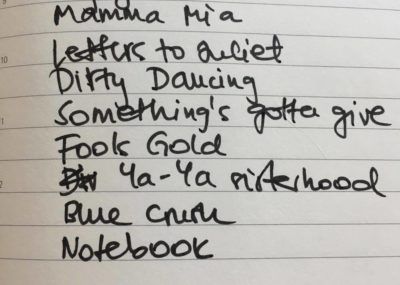 Mamma Mia
Letters to Juliet
Dirty Dancing
Something's gotta give
Fools Gold
Ya-Ya sisterhood
Blue Crush
Notebook